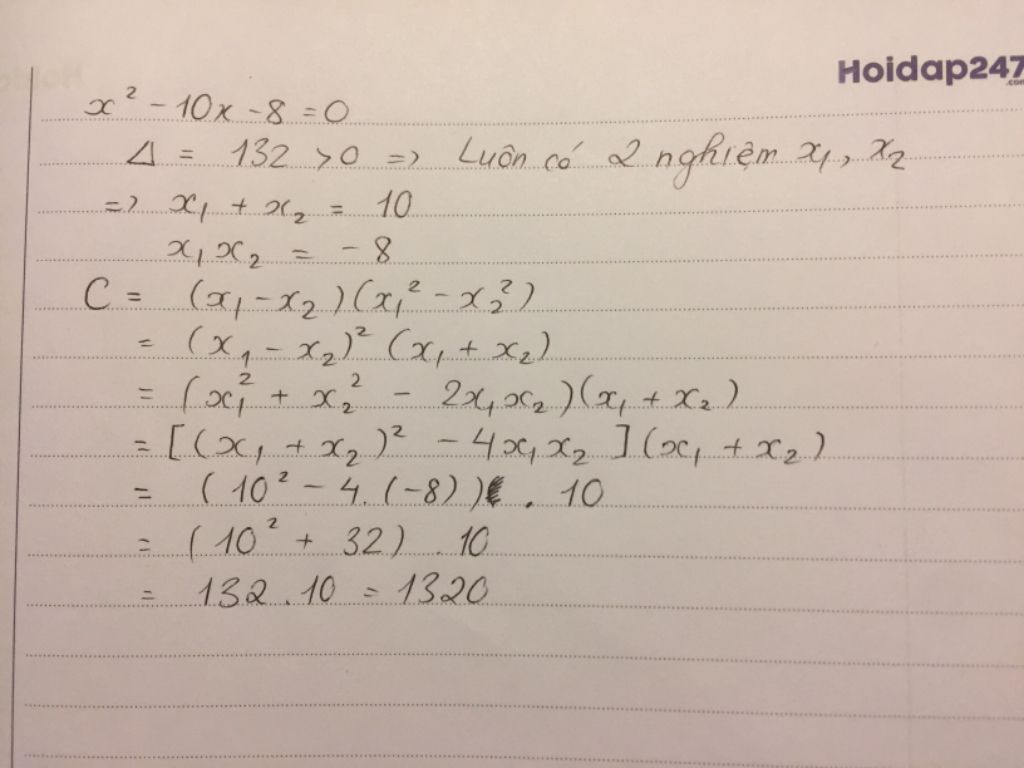 Hoidap247
.com
x² - 10x - 8 = 0
Δ = 132 > 0 => Luôn có 2 nghiệm x₁, x₂
=> x₁ + x₂ = 10
x₁x₂ = - 8
C = (x₁ - x₂)(x₁² - x₂²)
= (x₁ - x₂)² (x₁ + x₂)
= (x₁² + x₂² - 2x₁x₂)(x₁ + x₂)
= [(x₁ + x₂)² - 4x₁x₂](x₁ + x₂)
= (10² - 4.(-8)) . 10
= (10² + 32) . 10
= 132.10 = 1320